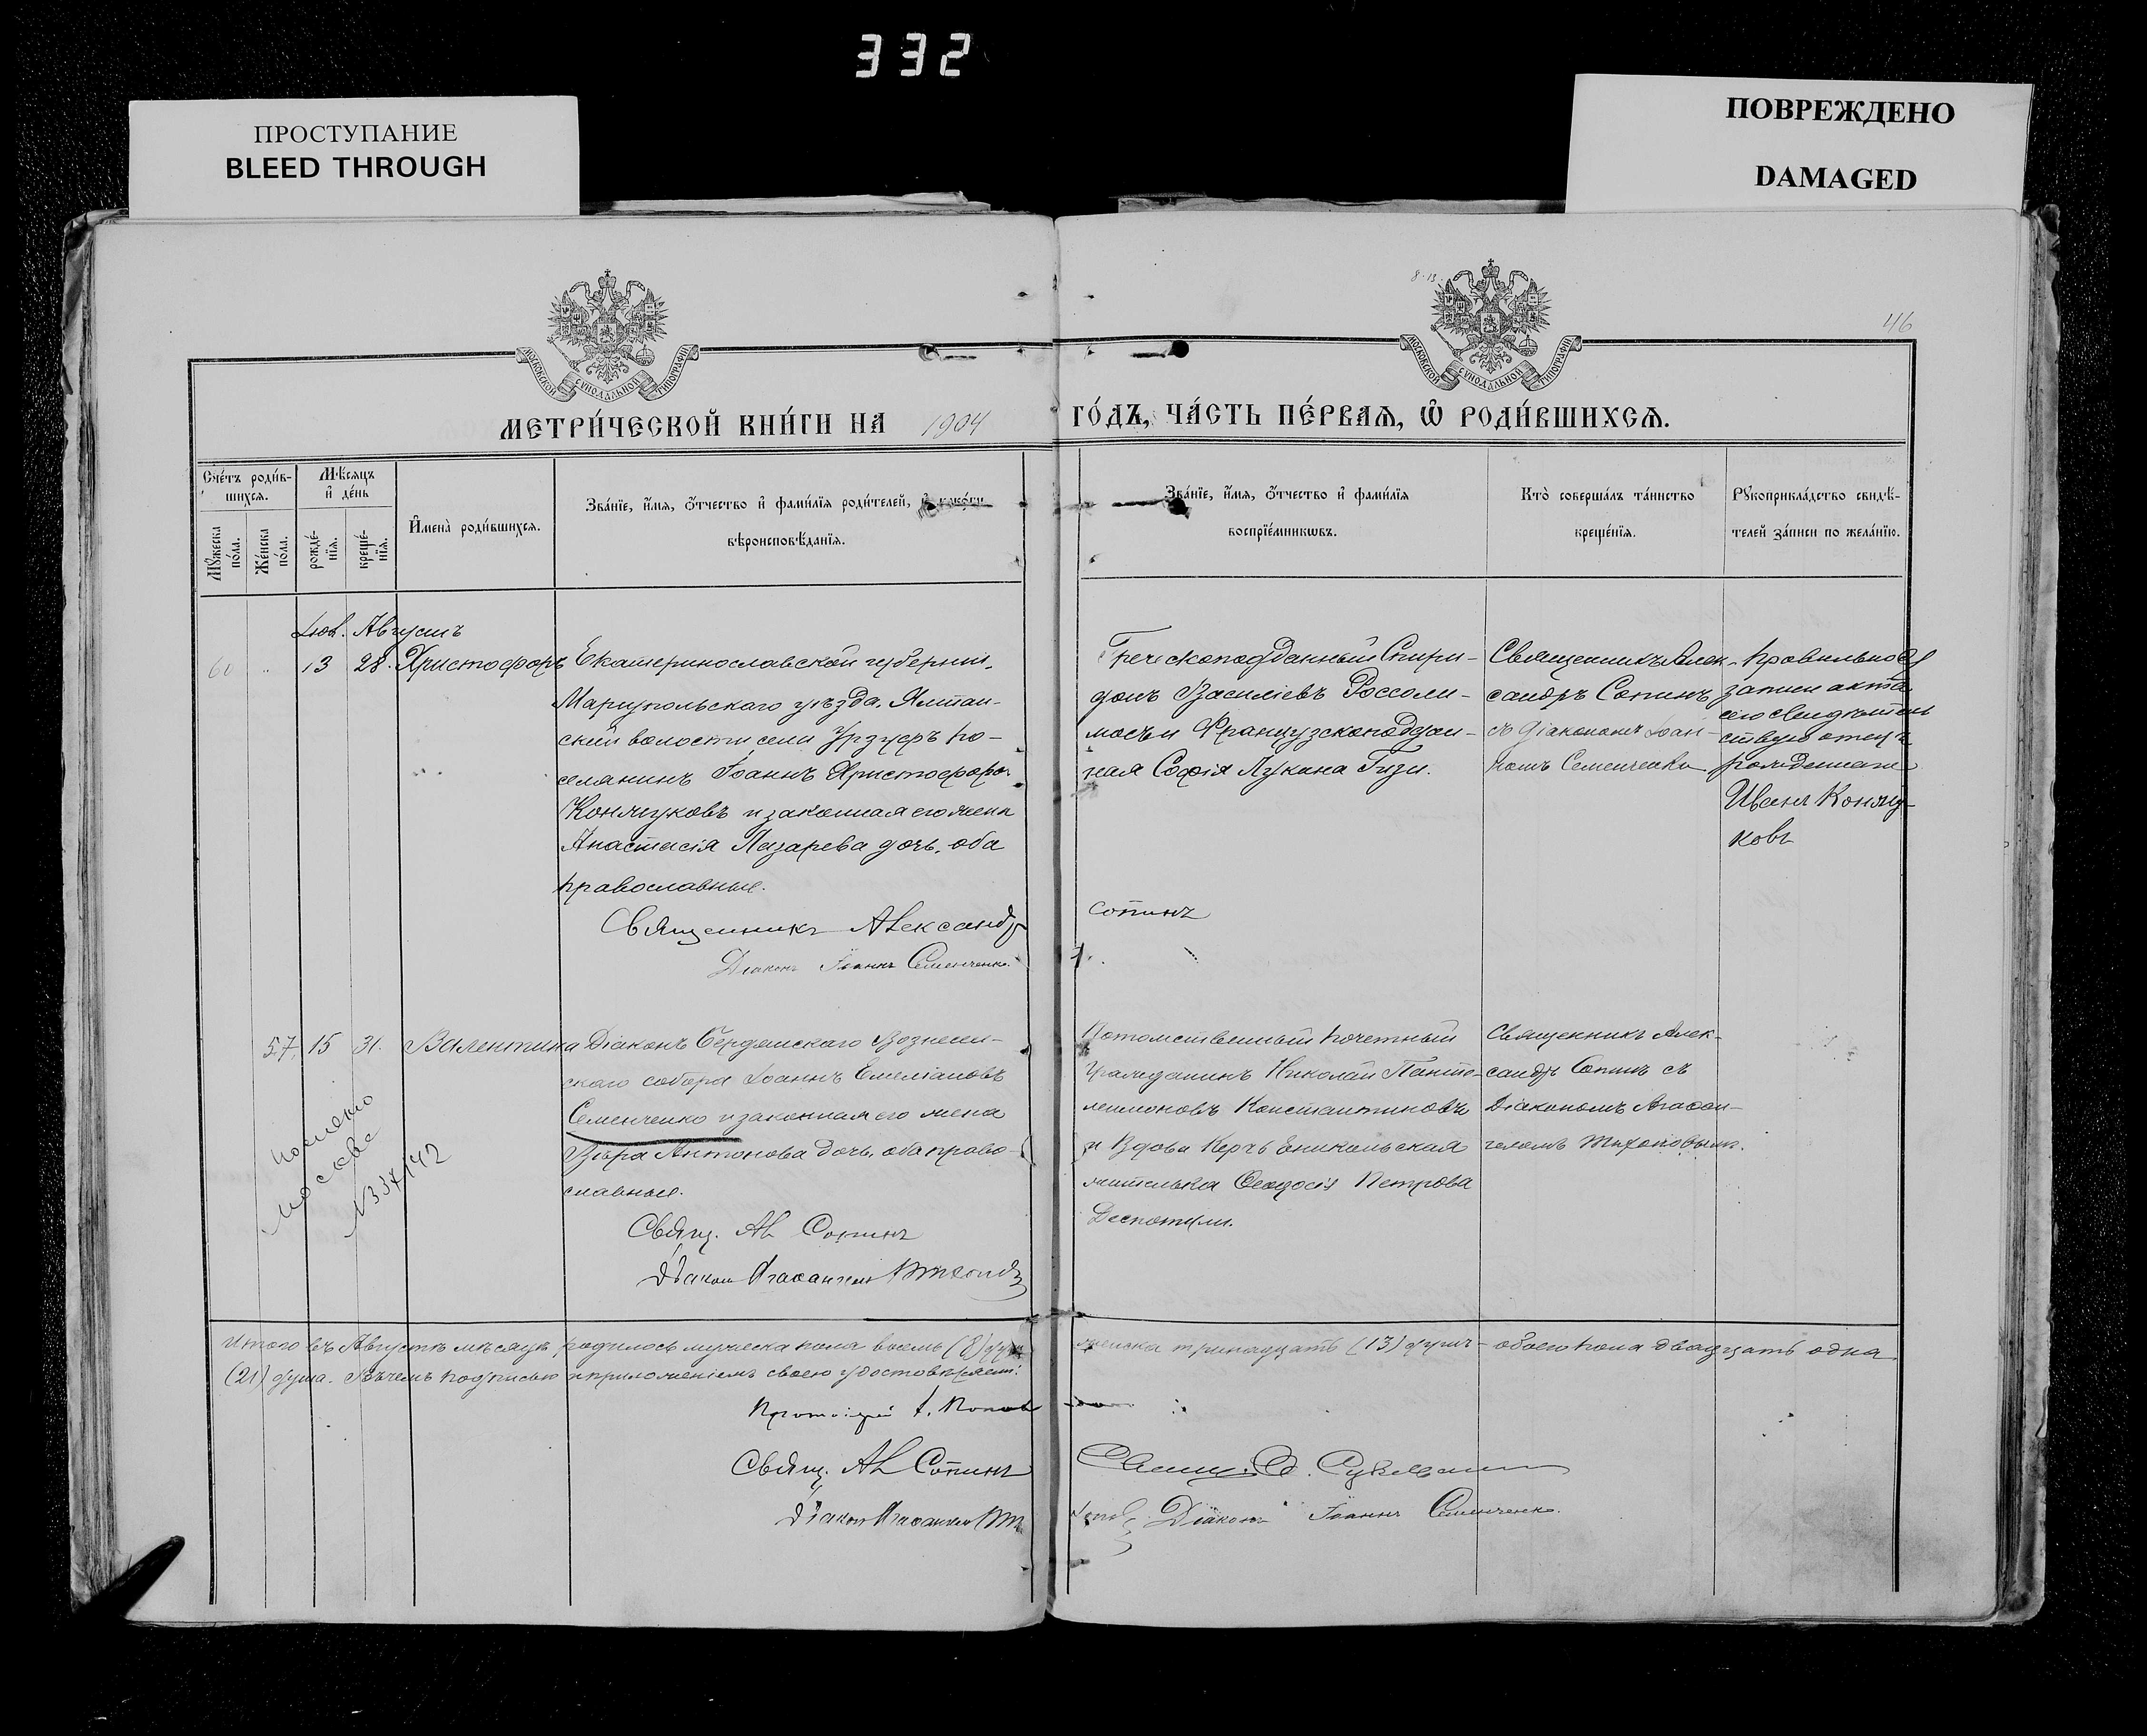 332
ПРОСТУПАНИЕ
BLEED THROUGH
ПОВРЕЖДЕНО
DAMAGED
46
МОСКОВСКОЙ СѴНОДАЛЬНОЙ ТИПОГРАФІИ
МОСКОВСКОЙ СѴНОДАЛЬНОЙ ТИПОГРАФІИ
МЕТРИ́ЧЕСКОЙ КНИ́ГИ НА 1904 ГО́ДЪ, ЧА́СТЬ ПЕ́РВАѦ, Ѡ҆ РОДИ́ВШИХСѦ.
Сче́тъ роди́в-
шихсѧ.
Мѣ́сѧцъ
и҆ де́нь
Мꙋ́жеска по́ла.
Же́нска по́ла.
рожде́-нїѧ.
креще́-нїѧ.
И҆мена̀ роди́вшихсѧ.
Зва́нїе, и҆́мѧ, ѻ҆́тчество и҆ фами́лїѧ роди́телей, и҆ како́гѡ
вѣроисповѣ́данїѧ.
Зва́нїе, и҆́мѧ, ѻ҆́тчество и҆ фами́лїѧ
воспрїе́мникѡвъ.
Кто̀ соверша́лъ та́инство
креще́нїѧ.
Рꙋкоприкла́дство свидѣ́-
телей за́писи по жела́нїю.
Августъ
60 13 28. Христофоръ
Екатеринославской губерніи,
Маріупольскаго уѣзда, Ялтин-
ской волости села Урзуфъ по-
селянинъ Іоаннъ Христофоровъ
Конжуковъ и законная его жена
Анастасія Лазарева дочь, оба
православные.
Священникъ Александръ Сопинъ
Діаконъ Іоаннъ Семенченко.
Грескоподданный Спири-
донъ Василіевъ Россоли-
мосъ и Французскоподдан-
ная Софія Лукина Гизи.
Священникъ Алек-
сандръ Сопинъ
съ діакономъ Іоан-
номъ Семенченко.
Правильность
записи акта
сего свидѣтель
ствую отецъ
рожденнаго
Иванъ Конжу-
ковъ
57 15 31. Валентина
Діаконъ Бердянскаго Вознесен-
скаго собора Іоаннъ Емеліановъ
Семенченко и законная его жена
Вѣра Антонова дочь, оба право-
славные.
Свящ. Ал Сопинъ
Діаконъ Агафангелъ Тихоновъ
Потомственный почетный
гражданинъ Николай Панте-
леимоновъ Константиновъ
и Вдова Керчь Еникальская
жителька Феодосія Петрова
Деспотули.
Священникъ Алек-
сандръ Сопинъ съ
Діакономъ Агафан-
геломъ Тихоновымъ.
Итого въ Августѣ мѣсяцѣ родилось мужеска пола восемь (8) душъ женска тринадцать (13) душъ - обоего пола двадцать одна
(21) душа. Въ чемъ подписью и приложеніемъ своею удостовѣряемъ:
Протоіерей Поповъ
Свящ. Ал Сопинъ
Діаконъ Агафангелъ Тихоновъ
Діаконъ Іоаннъ Семенченко.